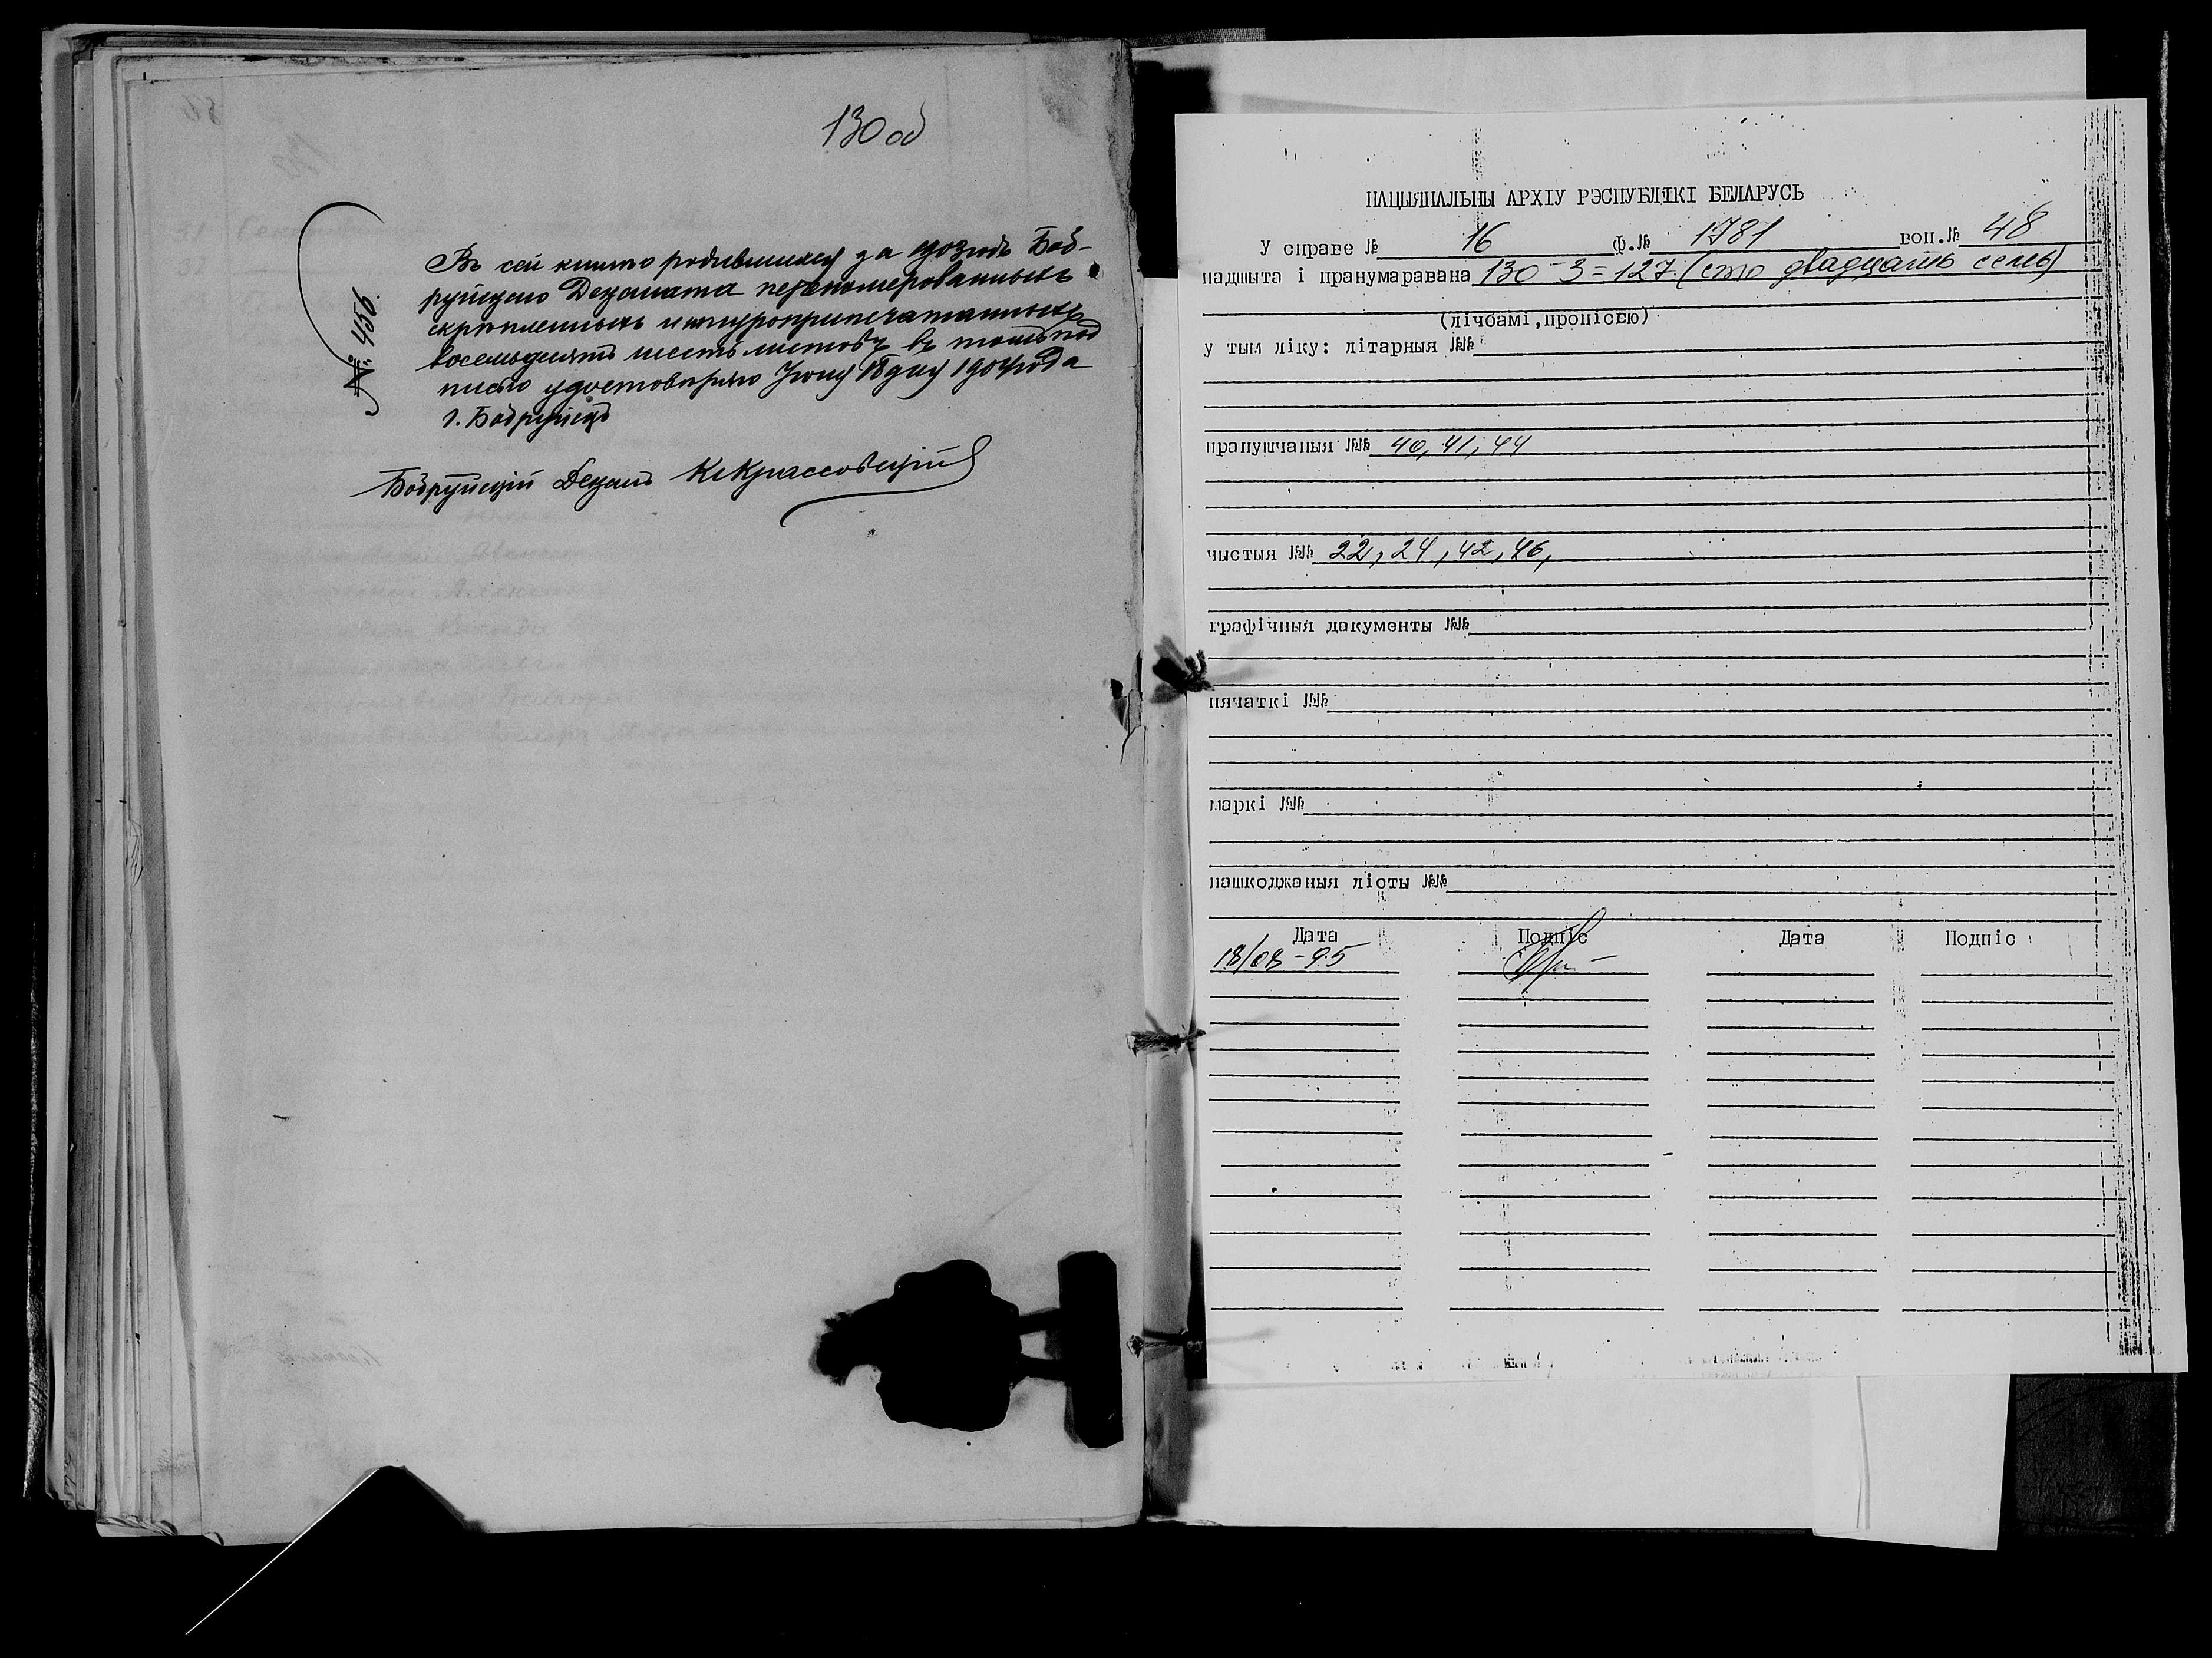 130 об
№ 456.
Въ сей книгѣ родившихся за 1903 годъ Боб-
руйскаго Деканата перенумерованныхъ
скрѣпленныхъ и шнуроприпечатанныхъ
восемьдесятъ шесть листовъ въ томъ под
писью удостовѣряю Іюня 18 дня 1904 года
г. Бобруйскъ
Бобруйскій Деканъ К Крассовскій
НАЦЫЯНАЛЬНЫ АРХІУ РЭСПУБЛІКІ БЕЛАРУСЬ
У справе № 16 ф.№ 1781 воп.№ 48
падшыта і пранумаравана 130-3=127 (сто двадцать семь)
(лічбамі,пропіссю)
у тым ліку: літарныя №№
прапушчаныя №№ 40, 41, 44
чыстыя №№ 22, 24, 42, 46,
графічныя дакументы №№
пячаткі №№
маркі №№
пашкоджаныя лісты №№
Дата Подпіс Дата Подпіс
18/08-95